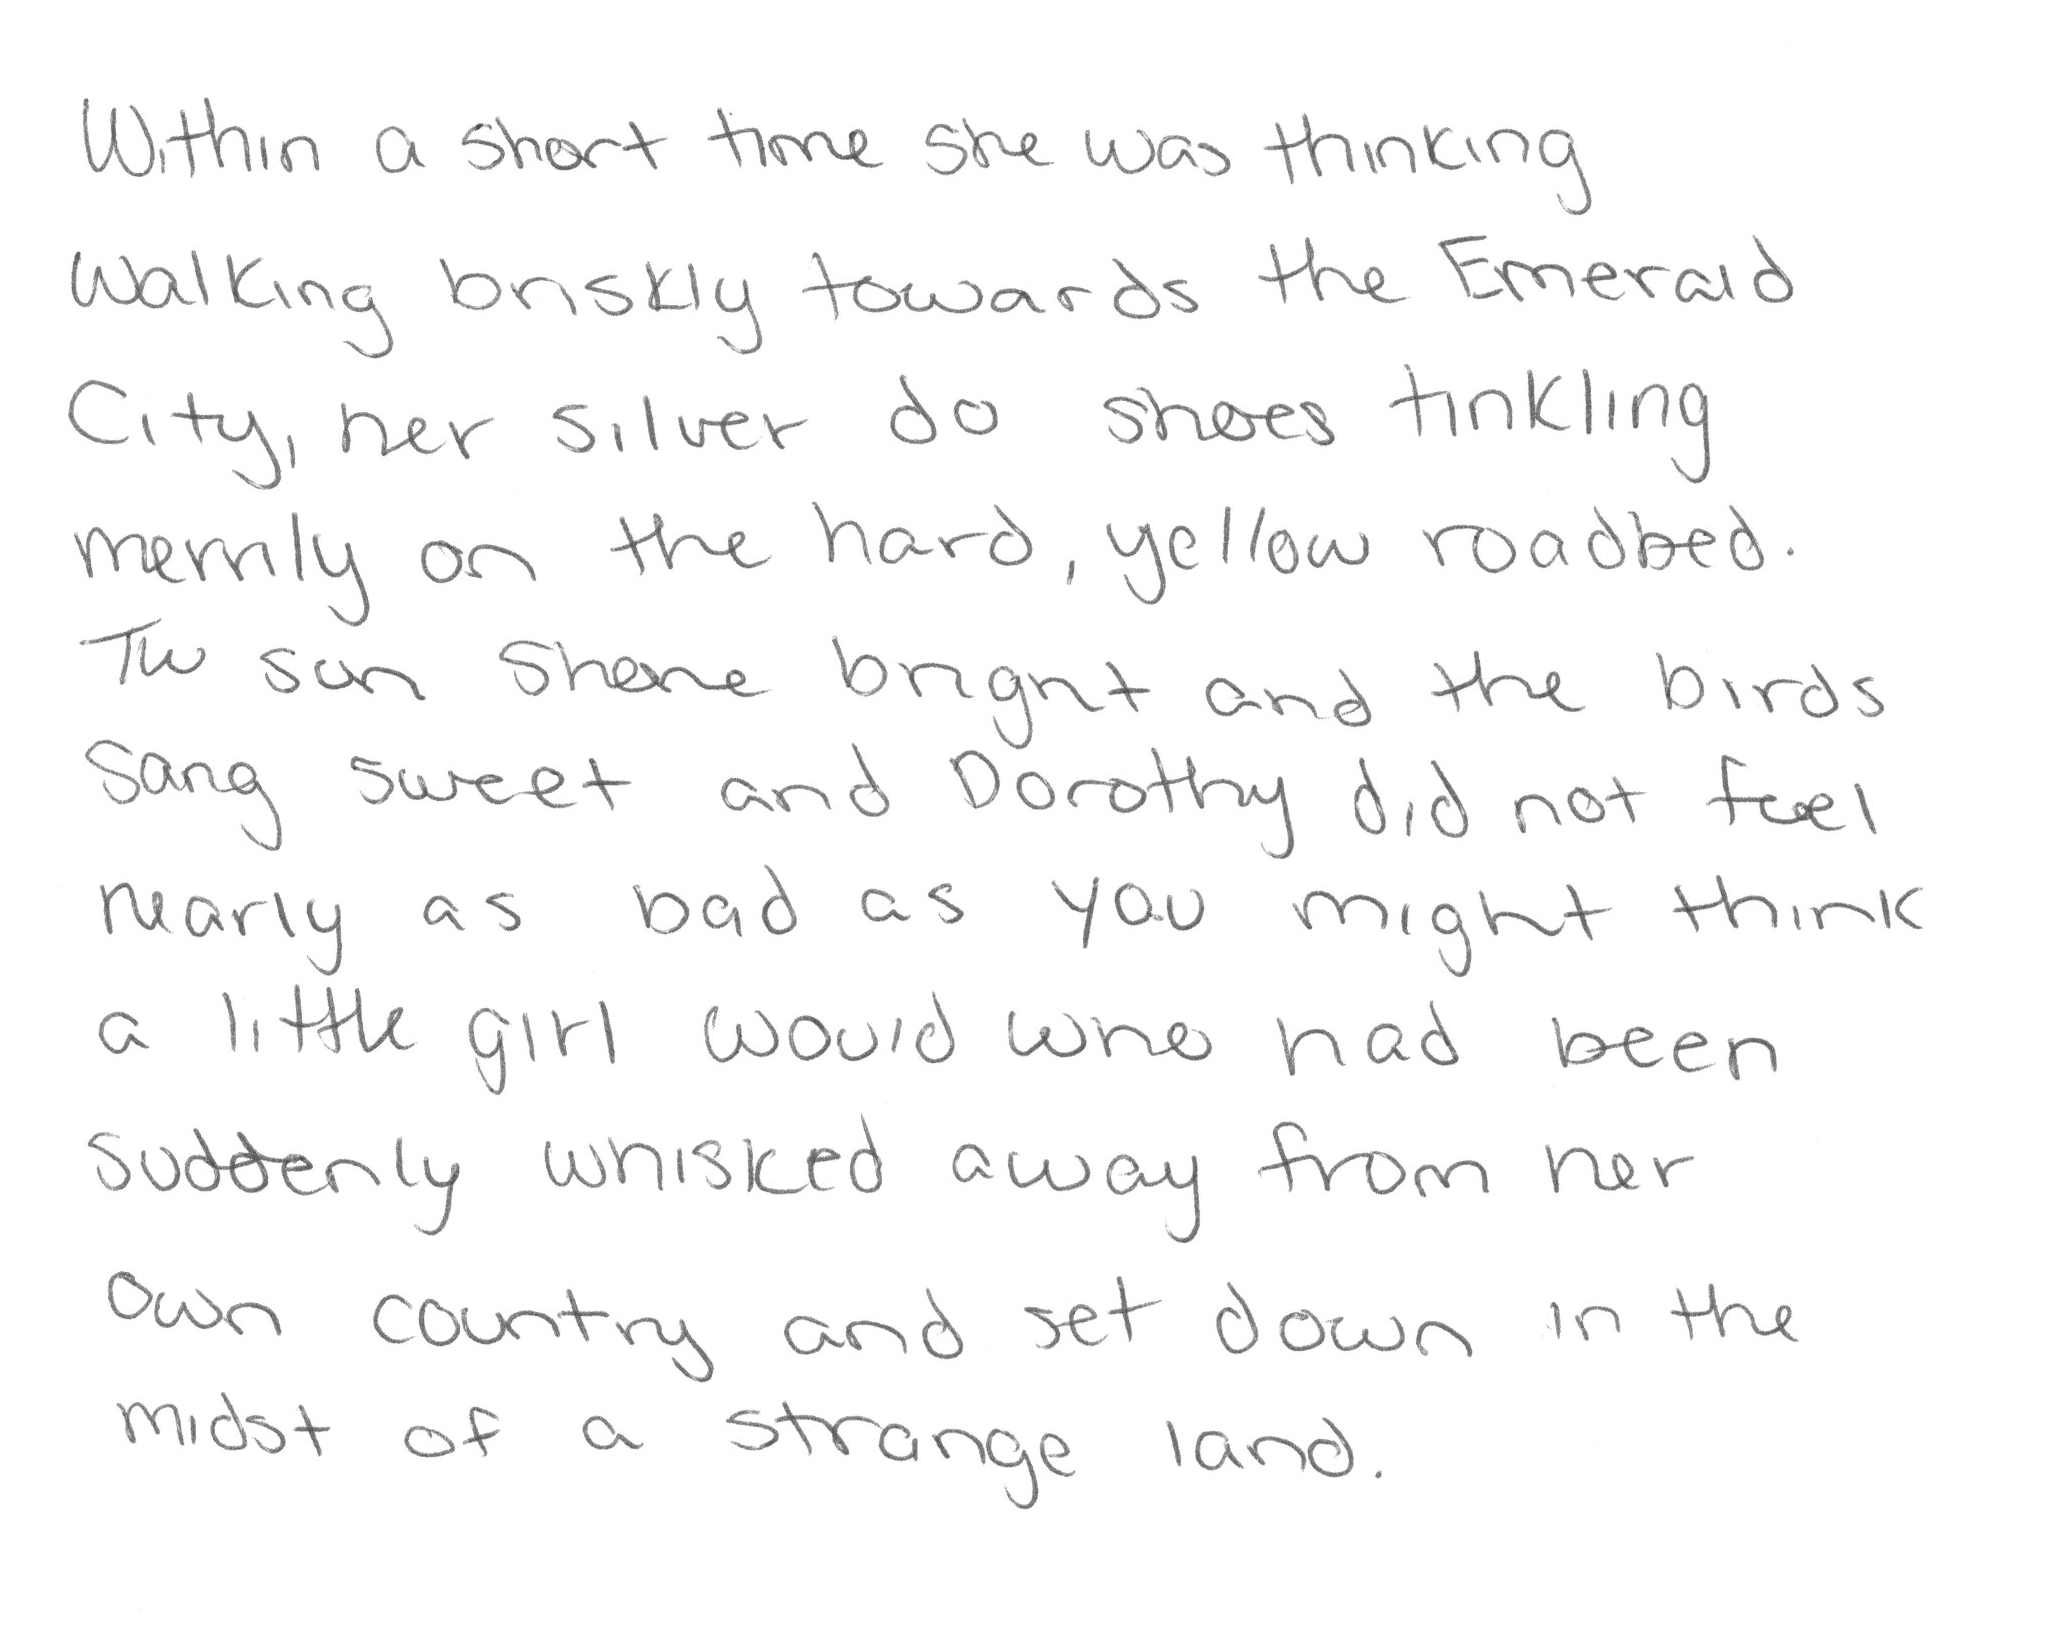 Within a short time she was thinking
Walking briskly towards the Emerald
City, her silver do shoes tinkling
merrily on the hard, yellow roadbed.
The sun shone bright and the birds
Sang sweet and Dorothy did not feel
nearly as bad as you might think
a little girl would who had been
suddenly whisked away from her
own country and set down in the
midst of a strange land.